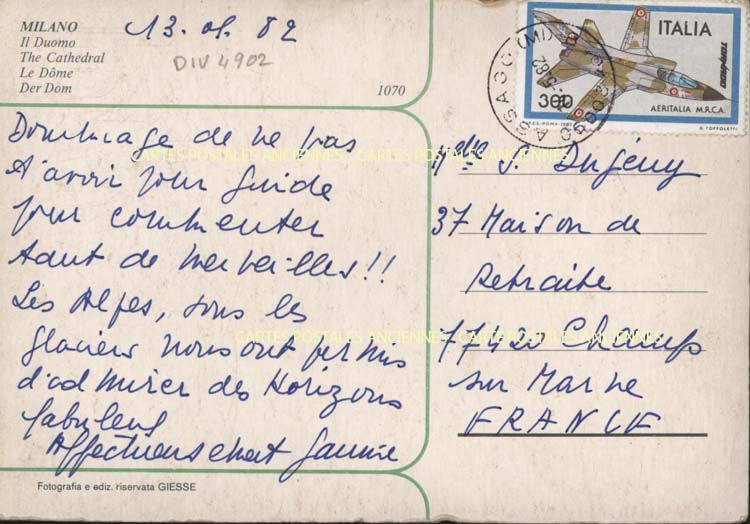 MILANO
Il Duomo
The Cathedral
Le Dôme
Der Dom
1070
DIV 4902
ITALIA
TORNADO
300
AERITALIA M.R.C.A.
G. TOFFOLETTI
ASSAGO (MI)
Dommage de ne pas
t'avoir pour guide
pour commenter
tant de merveilles!!
Les Alpes, tous les
glaciers nous ont permis
d'admirer des horizons
fabuleux
Affectueusement
Mlle S. Dugény
37 Maison de
Retraite
77420 Champs
sur Marne
FRANCE
Fotografia e ediz. riservata GIESSE
CARTES POSTALES ANCIENNES CARTES POSTALES ANCIENNES
CARTES POSTALES ANCIENNES CARTES POSTALES ANCIENNES